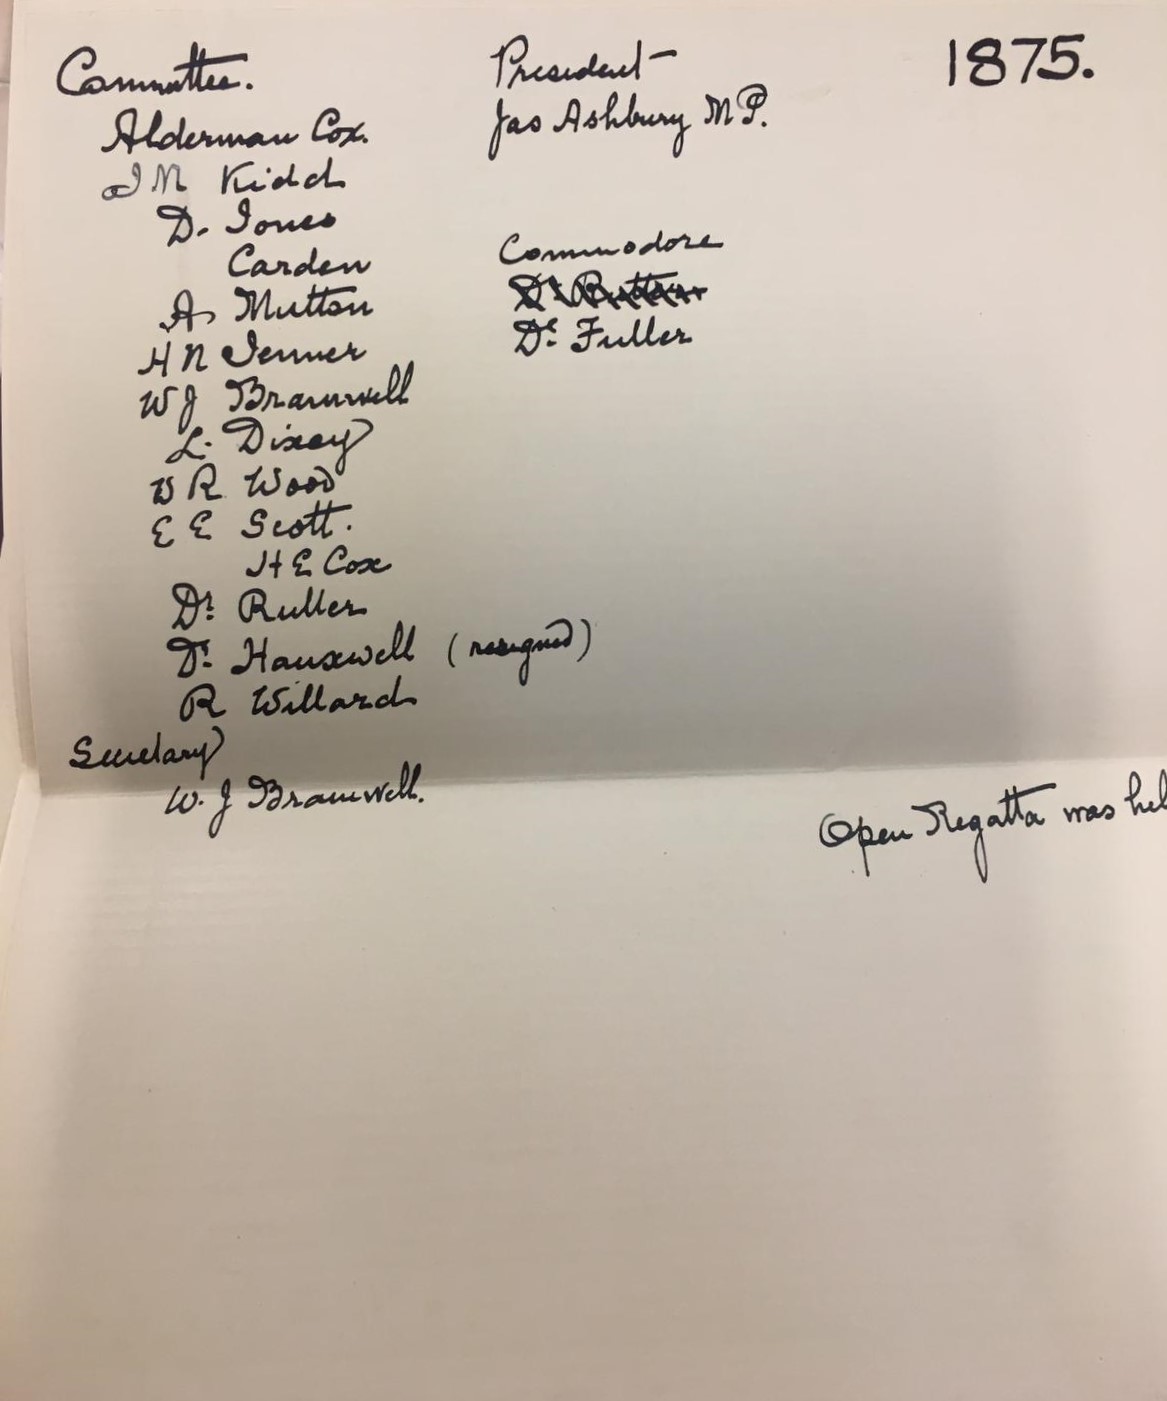 1875.
Committee.
Alderman Cox.
J N Kidd
D. Jones
Carden
A. Mutton
H N Jenner
W J Bramwell
L. Dixey
W R Wood
E E Scott.
H E Cox
Dr. Rutter
Dr. Hauxwell (resigned)
R Willard
Secretary
W. J Bramwell.
President
Jas Ashbury M P.
Commodore
Dr. Fuller
Open Regatta was hel